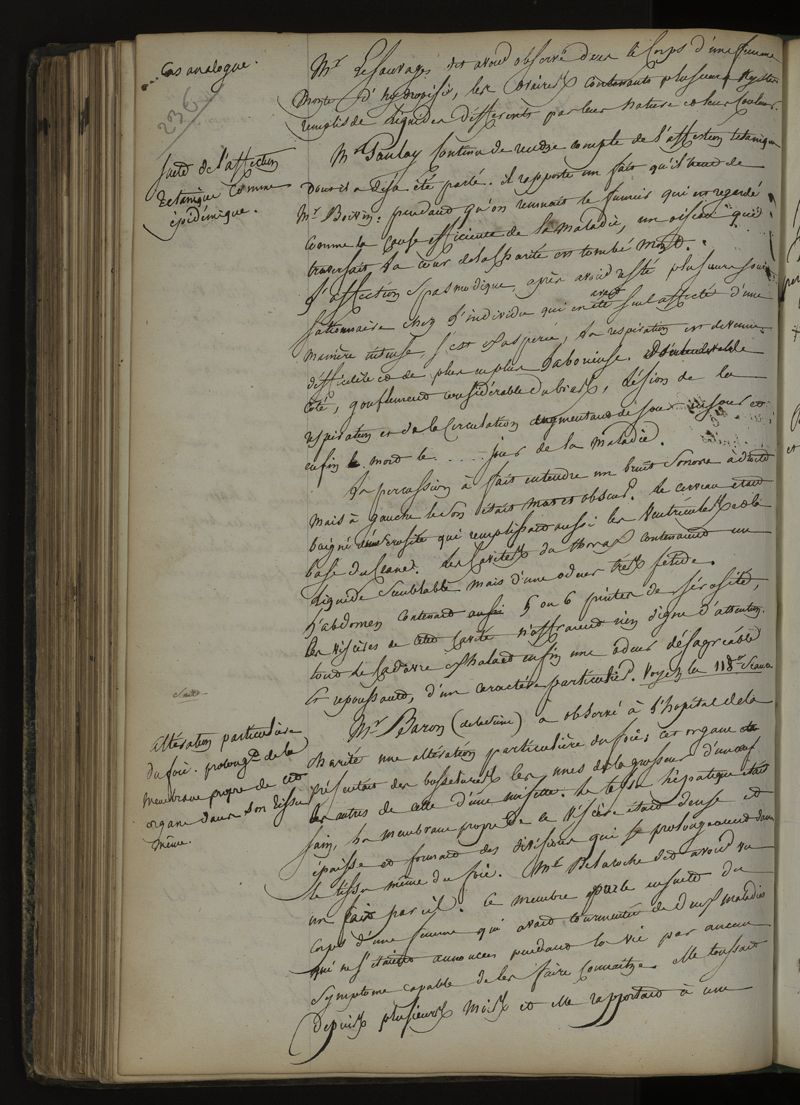 Cas analogue.
236
Mr. Lesauvage dit avoir observé dans le corps d'une femme
morte d'hydropisie, les ovaires contenants plusieurs kystes
remplis de liquides différents par leur nature et leur couleur.
suite de l'affection
tetanique comme
épidémique.
Mr. continue de rendre compte de l'affection tetanique
dont il a déja été parlé. il rapporte un fait qu'il tient de
Mr. Boivin: pendant qu'on remuait le fumier qui est regardé
comme la cause efficiente de la maladie, un oiseau qui
traversait la cour de la est tombé mort.
L'affection spasmodique, après avoir resté plusieurs jours
stationnaire chez l'individu qui en avait été seul affecté d'une
manière intense, s'est exaspérée, la respiration est devenue
difficile et de plus en plus laborieuse,
côté, gonflement considérable du bras, lésion de la
respiration et de la circulation augmentant de jour en jour et
enfin le mort le .... jour de la maladie.
La percussion à fait entendre un bruit sonore à droite
mais à gauche le son était mat et obscur. Le cerveau était
baigné de sérosité qui remplissait aussi les ventricules et la
base du crane. Les cavités du thorax contenaient un
liquide semblable mais d'une odeur très fétide.
L'abdomen contenait aussi 5 ou 6 pintes de sérosité,
les viscères de cette cavité n'offraient rien digne d'attention.
tout le cadavre exhalait enfin une odeur désagréable
et repoussant, d'un caractère particulier. Voyez la 118e. Séance
altération particulière
du foie: prolongt. de la
membrane propre de cet
organe dans son tissu
même.
Mr. Baron a observé à l'hopital de la
charité une altération particulière du foie; cet organe
présentait des bosselures les unes de la grosseur d'un œuf
les autres de celle d'une noisette. le tissu hépatique était
sain, la membrane propre de ce viscère était dense et
épaisse et formait des divisions qui se prolongeaient dans
le tissu même du foie. Mr. Delaroche dit avoir vu
un fait pareil. Ce membre parle ensuite du
corps d'une femme qui avait de deux maladies
qui ne s'étaient annoncées pendant la vie par aucun
symptome capable de les faire connaître. elle toussait
depuis plusieurs mois et elle rapportait à une